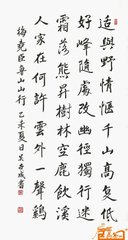 适与野情惬千山高复低
好峰随处改幽径独行迷
霜落熊升树林空鹿饮溪
人家在何许云外一声鸡
梅尧臣鲁山山行乙未夏日吴